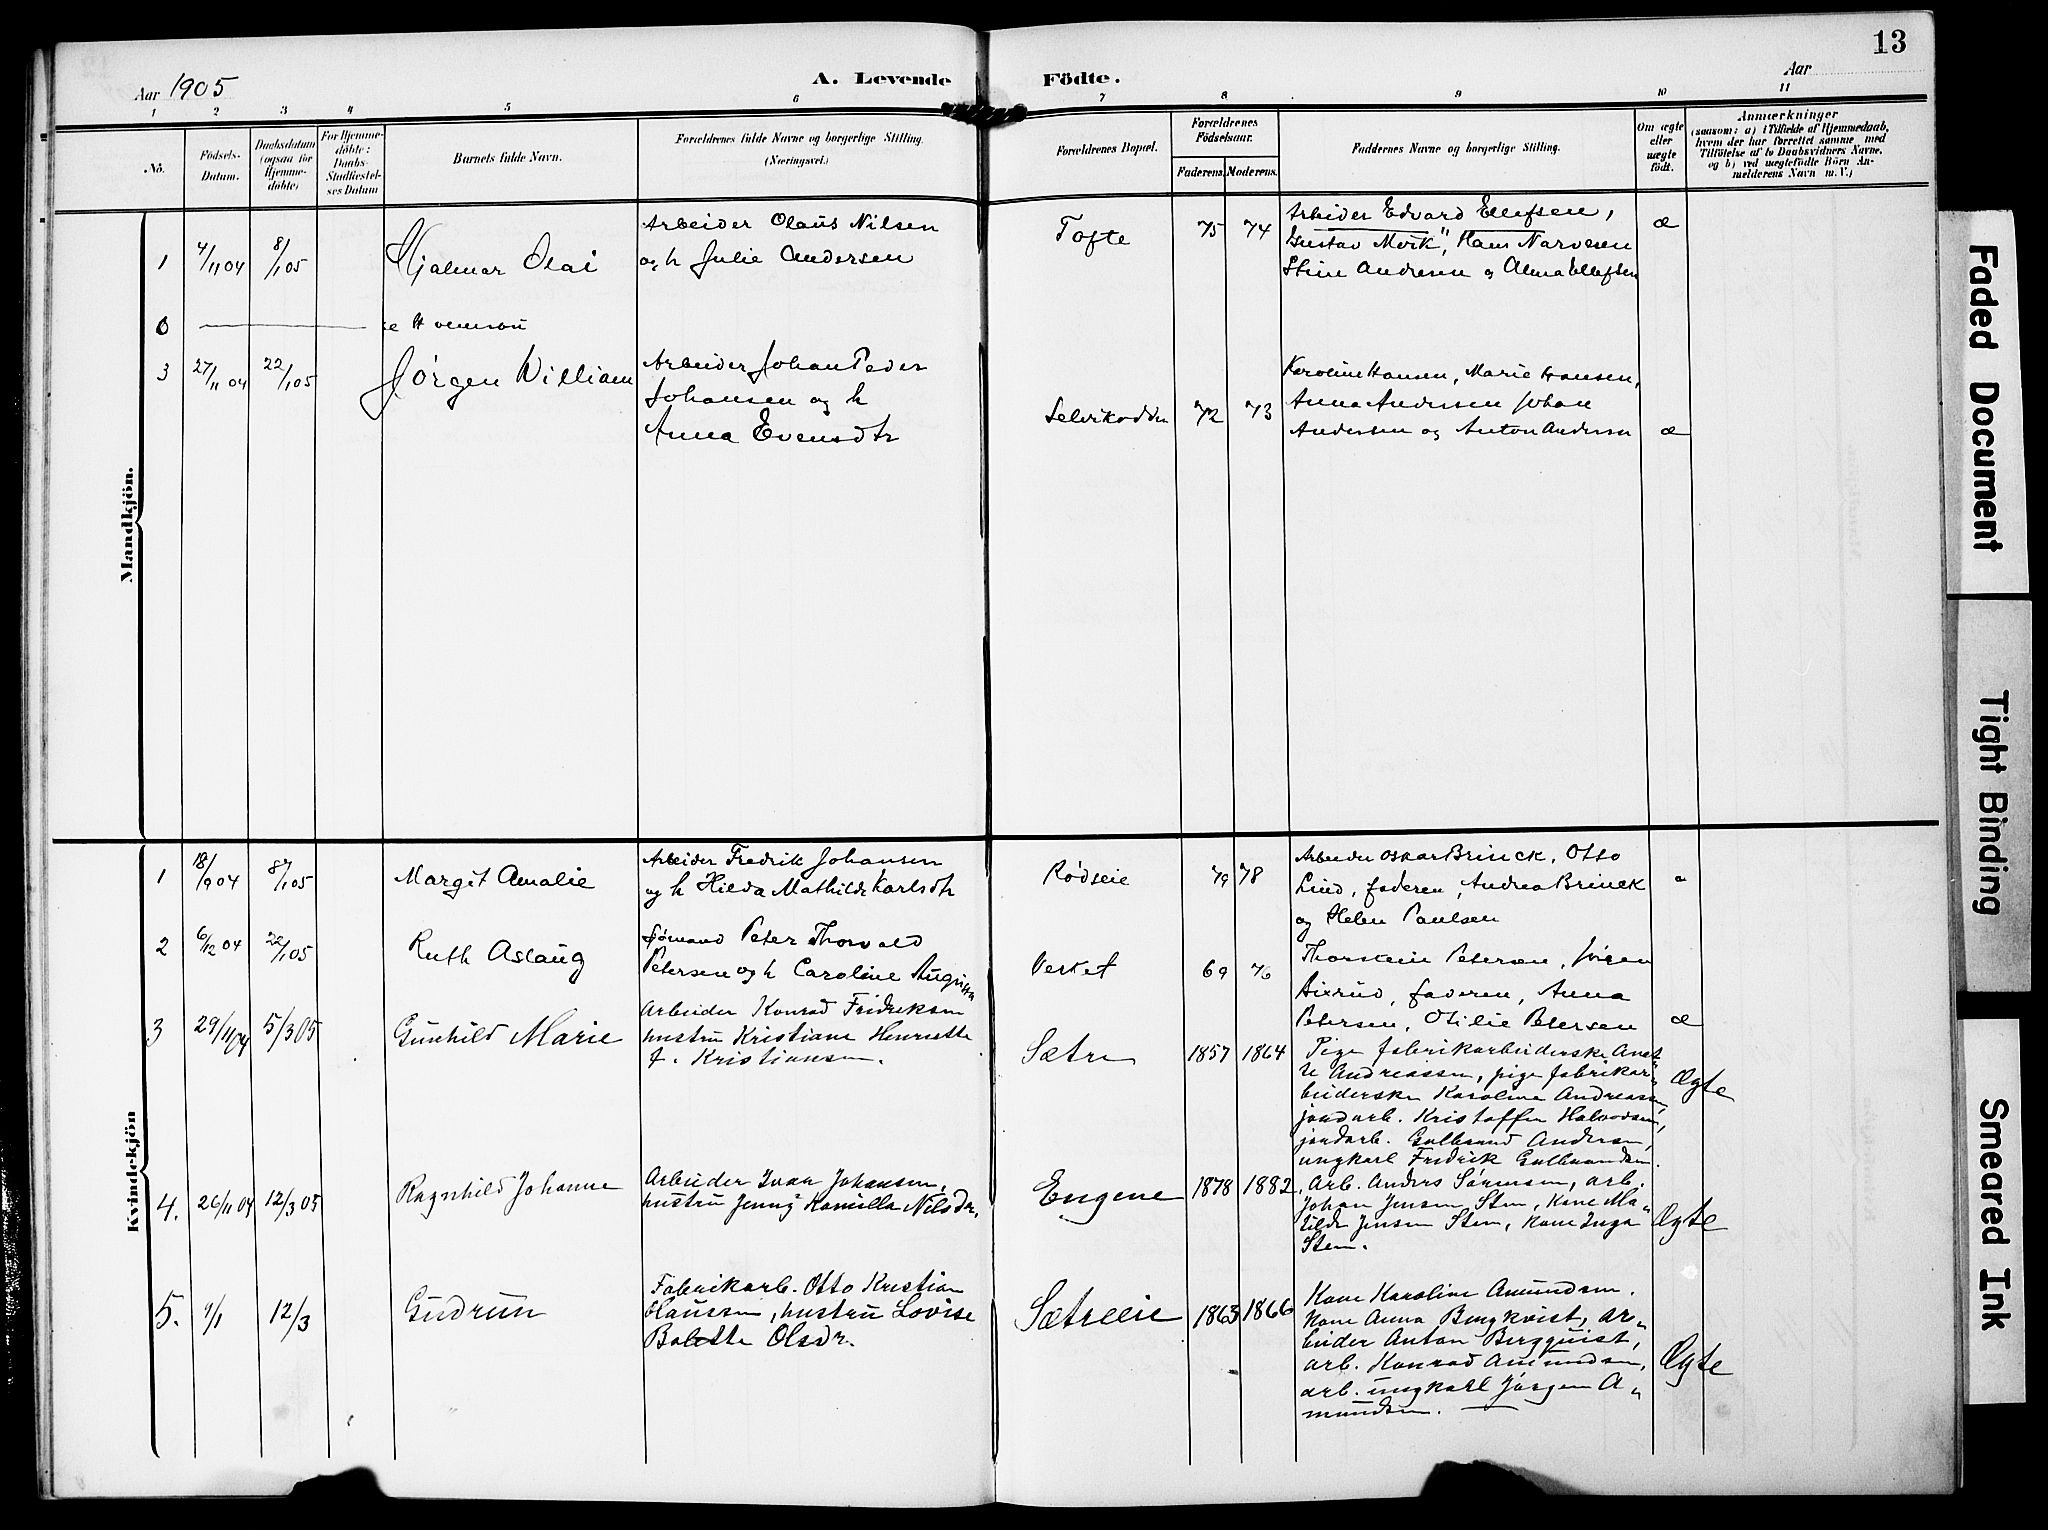 13
Aar 1905
A. Levende Födte.
Aar
1 2 3 4 5 6 7 8 9 10 11
No.
Födsels-Datum.
Daabsdatum (ogsaa for Hjemme-döbte)
For Hjemme-döbte: Daabs-Stadfæstel-ses Datum
Barnets fulde Navn.
Forældrenes fulde Navne og borgerlige Stilling. (Næringsvei.)
Forældrenes Bopæl.
Forældrenes Födselsaar.
Faderens. Moderens.
Faddernes Navne og borgerlige Stilling.
Om ægte eller uægte födt.
Anmærkninger
(saasom: a) i Tilfælde af Hjemmedaab,
hvem der har forrettet samme, med
Tilföielse af to Daabsvidners Navne,
og b) ved uægtefödte Börn An-
melderens Navn m. V.)
Mandkjön.
1 4/11 04 8/1 05 Hjalmar Olai
Arbeider Olaus Nilsen
og h Julie Andersen
Tofte 75 74
Arbeider Edvard Ellefsen,
Gustav Mørk", Hans Narvesen
Stine Andresen og Alma Ellefsen
æ
3 27/11 04 22/1 05 Jørgen William
Arbeider Johan Peder
Johansen og h
Anna Evensdtr
Selvikodden 72 73
Karoline Hansen, Marie Hansen,
Anna Andersen Johan
Andersen og Anton Andersen
æ
Kvindekjön
1 18/9 04 8/1 05 Margit Amalie
Arbeider Fredrik Johansen
og h Hilda Mathilde Karlsdtr
Rødseie 79 78
Arbeider Oskar Brinck, Otto
Lind, faderen, Andrea Brinck
og Helen Paulsen
"
2 6/12 04 22/1 05 Ruth Aslaug
Sjømand Peter Thorvald
Petersen og h Caroline Augusta
Verket 69 76
Thorstein Petersen, Jørgen
faderen, Anna
Petersen, Otilie Petersen
æ
3 29/11 04 5/3 05 Gunhild Marie
Arbeider Konrad Fridriksen
hustru Kristiane Henriette
f. Kristiansen.
Sætre 1857 1864
Pige fabrikarbeiderske Anet-
te Andreassen, pige fabrikar-
beiderske Karoline Andreassen,
jordarb. Kristoffer Halvordsen,
jordarb. Gulbrand Andersen,
ungkarl Fredrik Gulbrandsen.
Ægte
4. 26/11 04 12/3 05 Ragnhild Johanne
Arbeider Ivar Johansen,
hustru Jenny Kamilla Nilsdr.
Engene 1878 1882
Arb. Anders Sørensen, arb.
Johan Jensen Sten, Kone Ma-
tilde Jensen Sten, Kone Inga
Sten.
Ægte
5. 4/1 12/3 Gudrun
Fabrikarb. Otto Kristian
Claussen, hustru Lovise
Bolette Olsdr.
Sætreeie 1863 1866
Kone Karoline Amundsen.
Kone Anna Bergkvist, ar-
beider Anton Bergquist,
arb. Konrad Amundsen,
arb. ungkarl Jørgen A-
mundsen.
Ægte
Faded Document
Tight Binding
Smeared Ink